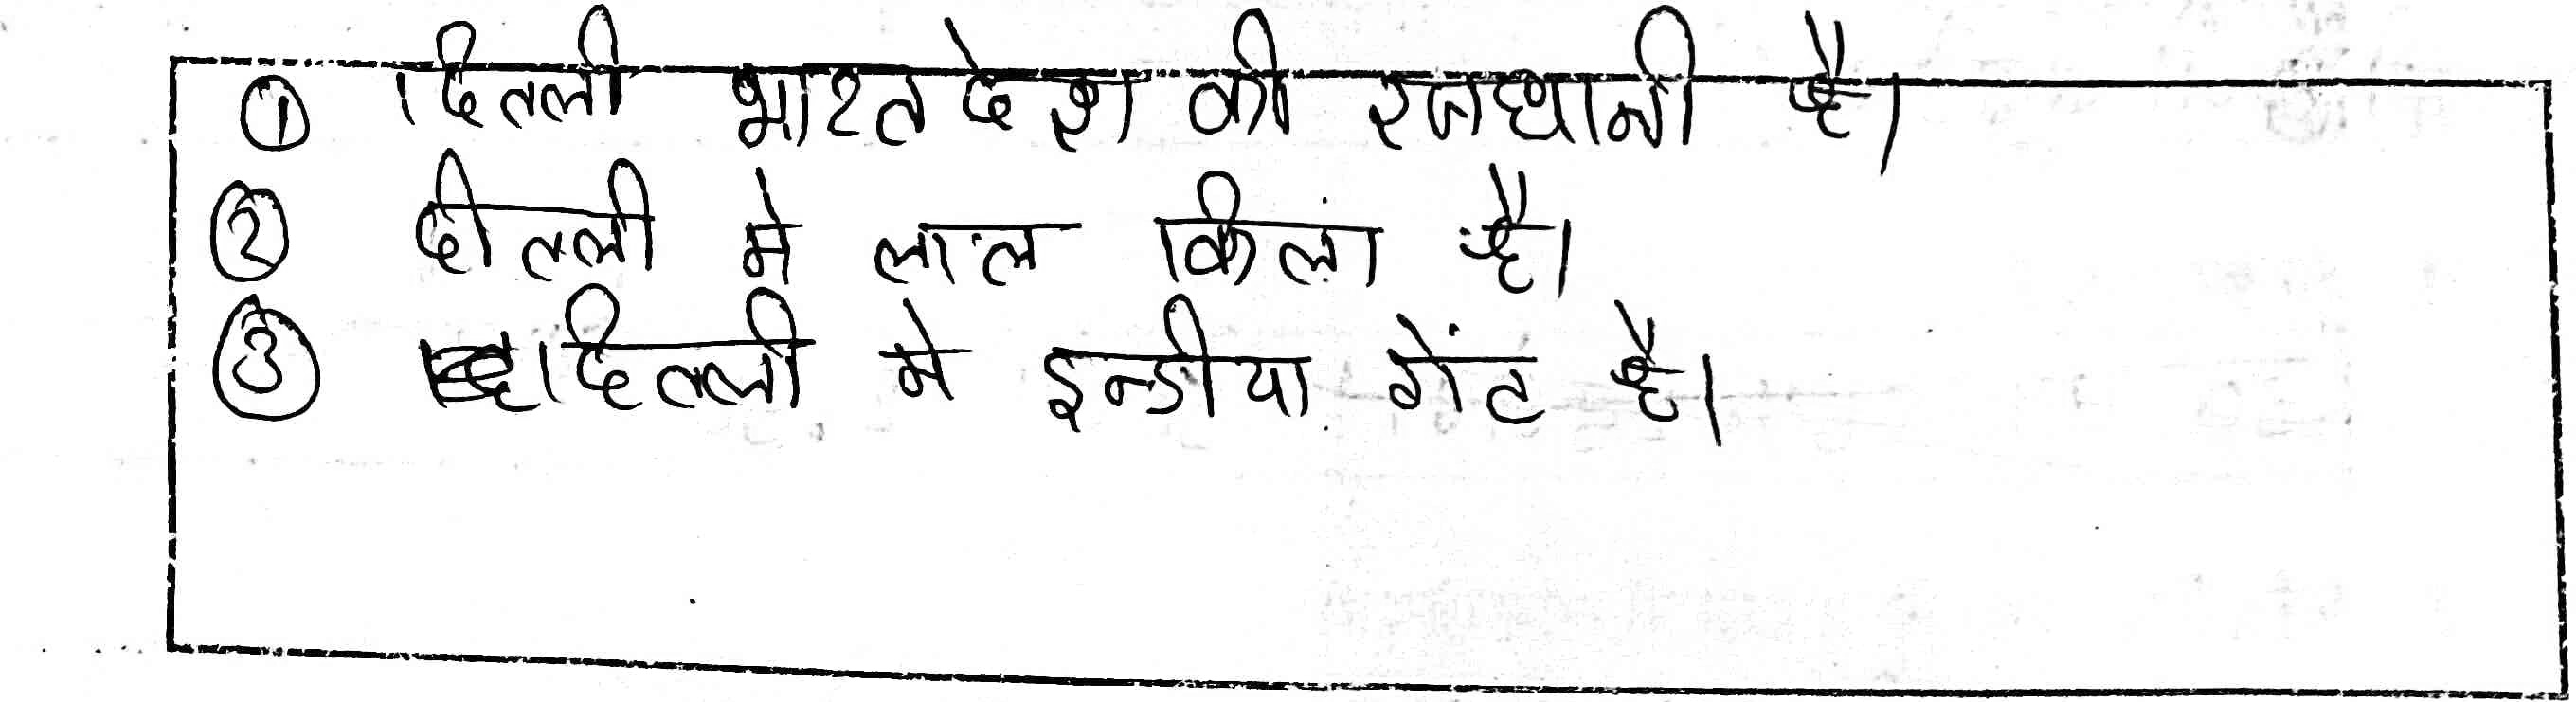 ① दिल्ली भारत देश की राजधानी है।
② दील्ली मे लाल किला है।
③ दिल्ली मे इन्डीया गेंट है।